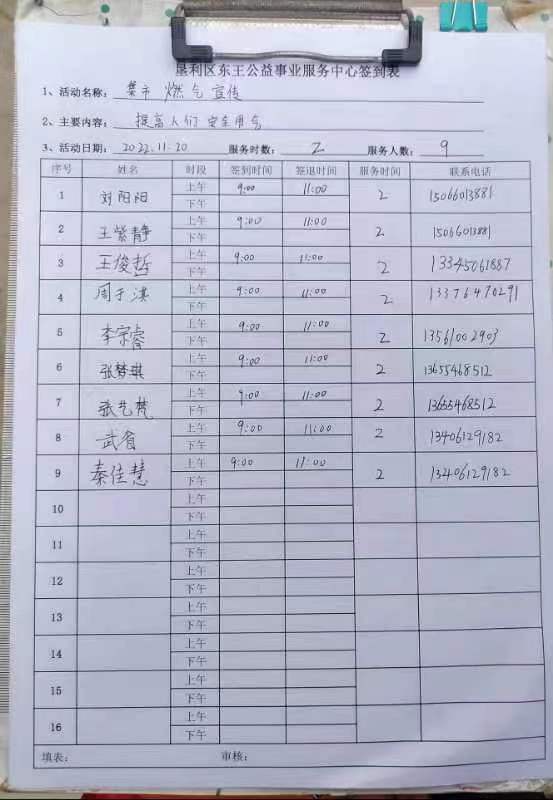 垦利区东王公益事业服务中心签到表
1、活动名称: 集市 燃气 宣传
2、主要内容: 提高人们安全用气
3、活动日期: 2022.11.20 服务时数: 2 服务人数: 9
序号 姓名 时段 签到时间 签退时间 服务时间 联系电话
1 刘阳阳 上午 9:00 11:00 2 15066013881
下午
2 王紫静 上午 9:00 11:00 2 15066013881
下午
3 王俊哲 上午 9:00 11:00 2 13345061887
下午
4 周于淇 上午 9:00 11:00 2 13376470291
下午
5 李宗睿 上午 9:00 11:00 2 13561002903
下午
6 张梦琪 上午 9:00 11:00 2 13655468512
下午
7 张艺梵 上午 9:00 11:00 2 13655468512
下午
8 武 上午 9:00 11:00 2 13406129182
下午
9 秦佳慧 上午 9:00 11:00 2 13406129182
下午
10 上午
下午
11 上午
下午
12 上午
下午
13 上午
下午
14 上午
下午
15 上午
下午
16 上午
下午
填表: 审核: